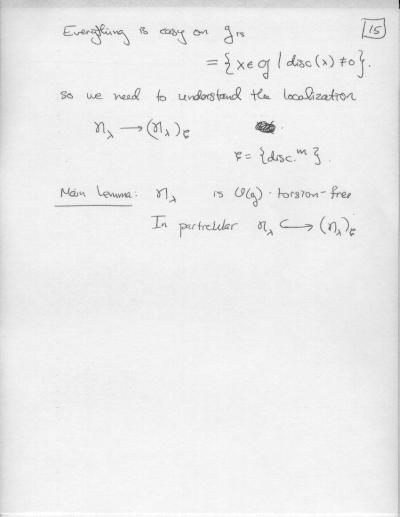 Everything is easy on g_rs
15
= { x ∈ g | disc(x) ≠ 0 }.
so we need to understand the localization
𝔐_λ → (𝔐_λ)_F
F = {disc.^m}.
Main Lemma: 𝔐_λ is O(g)-torsion-free
In particular 𝔐_λ ↪ (𝔐_λ)_F